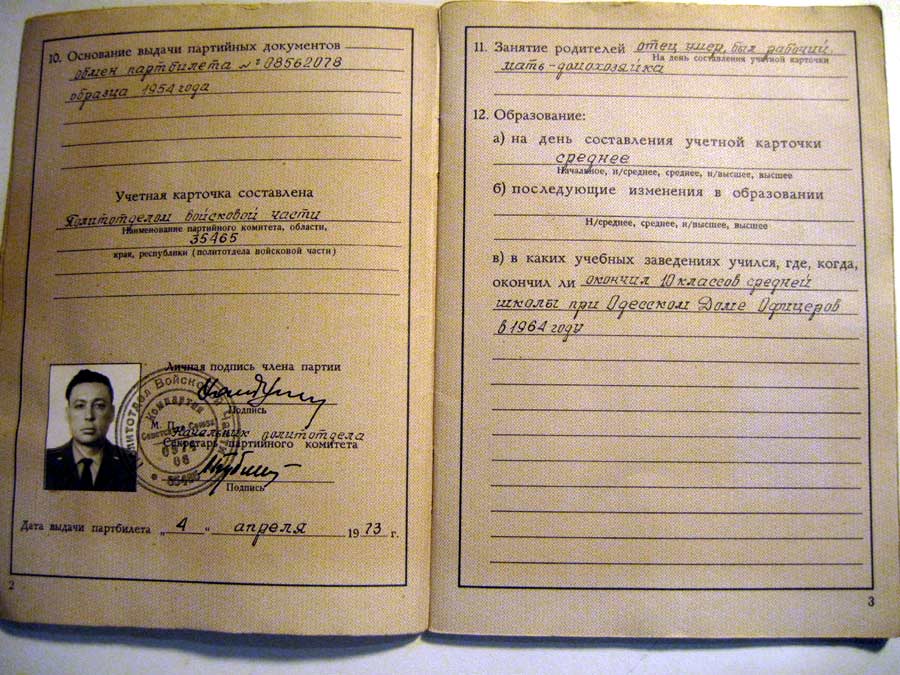 10. Основание выдачи партийных документов
обмен партбилета №08562078
образца 1954 года
Учетная карточка составлена
Политотделом войсковой части
Наименование партийного комитета, области,
35465
края, республики (политотдела войсковой части)
Личная подпись члена партии
Подпись
М. П.
Начальник политотдела
Секретарь партийного комитета
Подпись
Политотдел Войсковой Части
Компартия
Советского Союза
35465
Дата выдачи партбилета „4“ апреля 1973 г.
2
11. Занятие родителей отец умер, был рабочий,
На день составления учетной карточки
мать-домохозяйка
12. Образование:
а) на день составления учетной карточки
среднее
Начальное, н/среднее, среднее, н/высшее, высшее
б) последующие изменения в образовании
Н/среднее, среднее, н/высшее, высшее
в) в каких учебных заведениях учился, где, когда,
окончил ли окончил 10 классов средней
школы при Одесском Доме Офицеров
в 1964 году
3